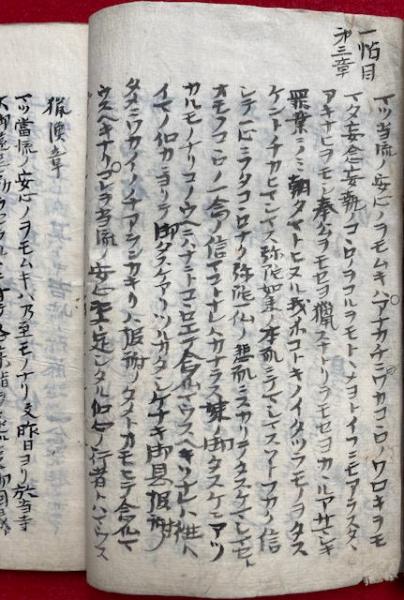 一帖目
第三章
マツ当流ノ安心ノヲモムキハアナカチニワカコヽロノワロキヲモ
マタ妄念妄執ノコヽロノヲコルヲモトヽメヨトイフニモアラスタヽ
アキナヒヲモシ奉公ヲモセヨ猟スナトリヲモセヨカヽルアサマシキ
罪業ニノミ朝夕マトヒヌル我等コトキノイタツラモノヲタス
ケントチカヒマシマス弥陀如来ノ本願ニテマシマスソトフカク信
シテ一心ニフタコヽロナク弥陀一仏ノ悲願ニスカリテタスケマシマセト
オモフコヽロノ一念ノ信マコトナレハカナラス如来ノ御タスケニアツ
カルモノナリコノウヘニハナニトコヽロエテ念仏マウスヘキソナレハ往生ハ
イマノ信力ニヨリテ御タスケアリツルカタシケナキ御恩報謝ノ
タメニワカイノチアランカキリハ報謝ノタメトオモヒテ念仏マ
ウスヘキナリコレヲ当流ノ安心決定シタル信心ノ行者トハマウス
猟漁章
マツ當流ノ安心ノヲモムキハ乃至モノナリ文昨日ヨリ於当寺